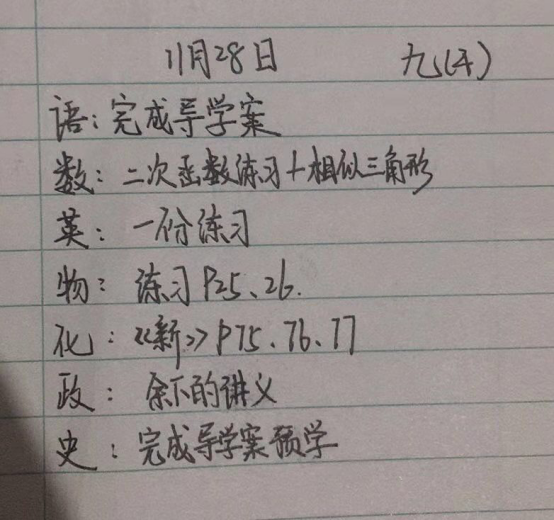 11月28日 九(4)
语：完成导学案
数：二次函数练习+相似三角形
英：一份练习
物：练习P25、26.
化：《新》P75、76、77
政：余下的讲义
史：完成导学案预学